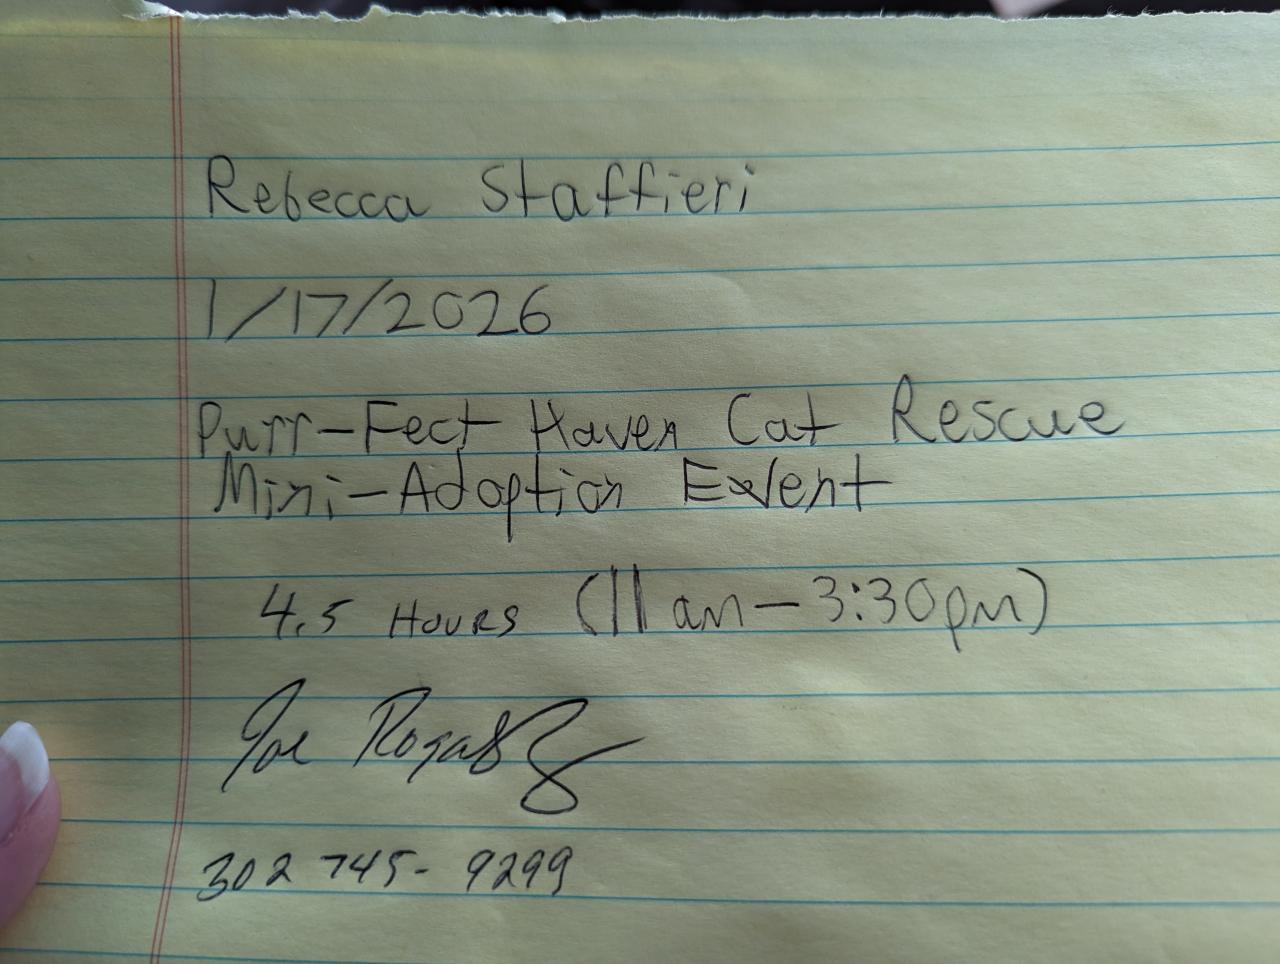 Rebecca Staffieri
1/17/2026
Purr-Fect Haven Cat Rescue
Mini-Adoption Event
4.5 HOURS (11am-3:30pm)
Joe
302 745-9299